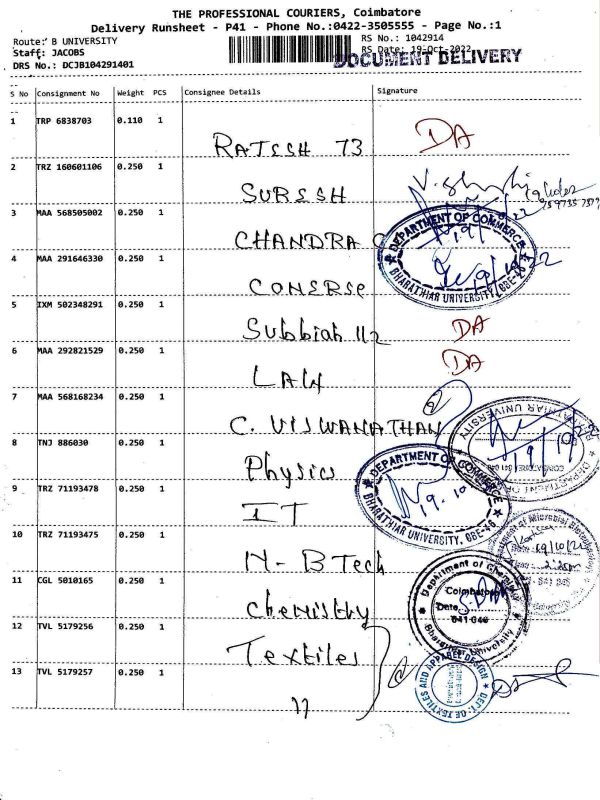 THE PROFESSIONAL COURIERS, Coimbatore
Delivery Runsheet - P41 - Phone No.:0422-3505555 - Page No.:1
Route: B UNIVERSITY RS No.: 1042914
Staff: JACOBS RS Date: 19-Oct-2022
DOCUMENT DELIVERY
DRS No.: DCJB104291401
S No Consignment No Weight PCS Consignee Details Signature
1 TRP 6838703 0.110 1
RATESH 73 DA
2 TRZ 160601106 0.250 1
SURESH
3 MAA 568505002 0.250 1
CHANDRA
DEPARTMENT OF COMMERCE
BHARATHIAR UNIVERSITY, CBE-46
4 MAA 291646330 0.250 1
CONERSE
5 IXM 502348291 0.250 1
Subbiah 112 DA
6 MAA 292821529 0.250 1
LAW DA
7 MAA 568168234 0.250 1
C. VISWANATHAN
BHARATHIAR UNIVERSITY
8 TNJ 886030 0.250 1
Physics
DEPARTMENT OF COMMERCE
BHARATHIAR UNIVERSITY, CBE-46
19.10
9 TRZ 71193478 0.250 1
IT
10 TRZ 71193475 0.250 1
N-BTech
Department of Microbial Biotechnology
11 CGL 5010165 0.250 1
Chemistry
Department of Chemistry
Coimbatore
Date
641 046
Bharathiar University
12 TVL 5179256 0.250 1
Textiles
DEPT. OF TEXTILES AND APPAREL DESIGN
13 TVL 5179257 0.250 1
"